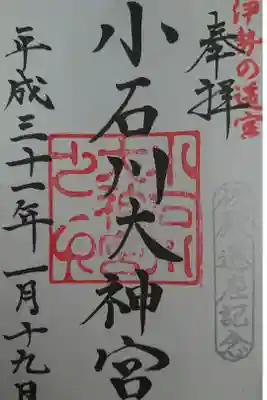 伊勢の遥宮
奉拝
小石川大神宮
小石川大神宮之印
平成三十一年一月十九日